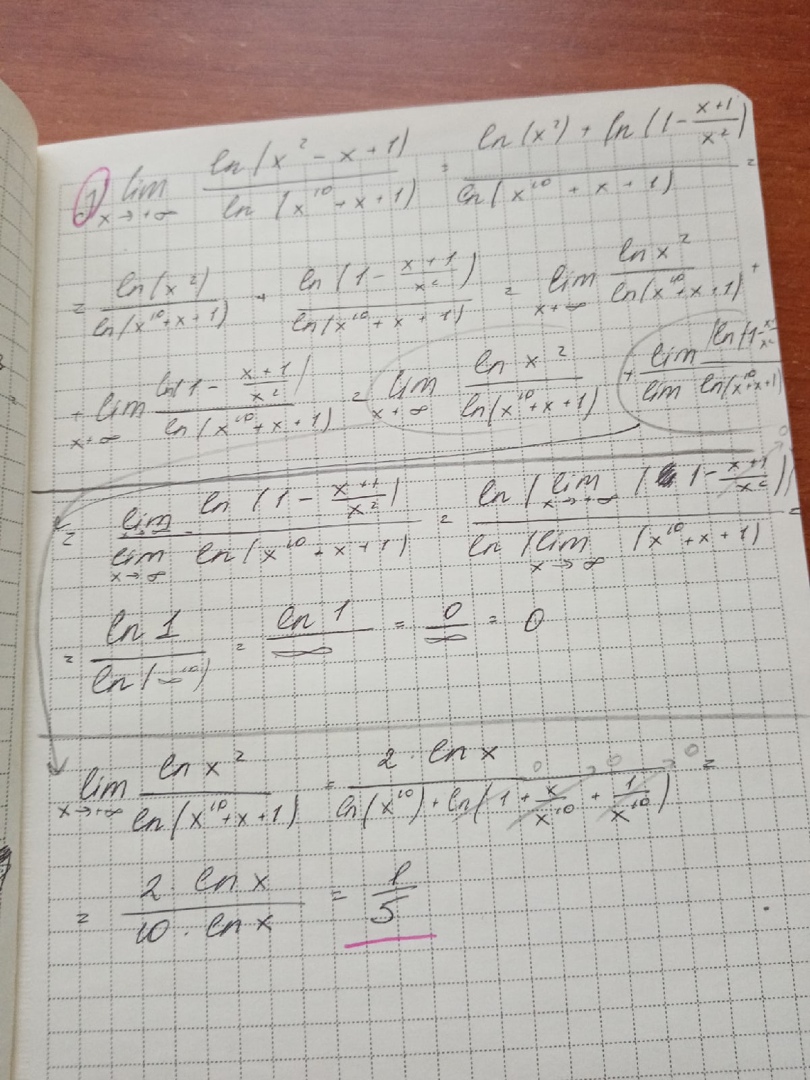 1) lim x→+∞ ln(x² - x + 1) / ln(x¹⁰ + x + 1) = ln(x²) + ln(1 - (x+1)/x²) / ln(x¹⁰ + x + 1) =
= ln(x²) / ln(x¹⁰ + x + 1) + ln(1 - (x+1)/x²) / ln(x¹⁰ + x + 1) = lim x→+∞ ln x² / ln(x¹⁰ + x + 1) +
+ lim x→+∞ ln(1 - (x+1)/x²) / ln(x¹⁰ + x + 1) = lim x→+∞ ln x² / ln(x¹⁰ + x + 1) + lim / lim ln(x¹⁰ + x + 1)
= lim / lim x→∞ ln(1 - (x+1)/x²) / ln(x¹⁰ + x + 1) = ln(lim x→+∞ (1 - (x+1)/x²)) / ln(lim x→∞ (x¹⁰ + x + 1) = 0
= ln 1 / ln(∞¹⁰) = ln 1 / ∞ = 0 / ∞ = 0
lim x→+∞ ln x² / ln(x¹⁰ + x + 1) = 2 · ln x / ln(x¹⁰) + ln(1 + x/x¹⁰ + 1/x¹⁰) = 0 0 0
= 2 · ln x / 10 · ln x = 1/5